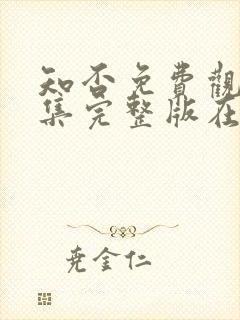 知否免費觀
集完整版在
尭金仁